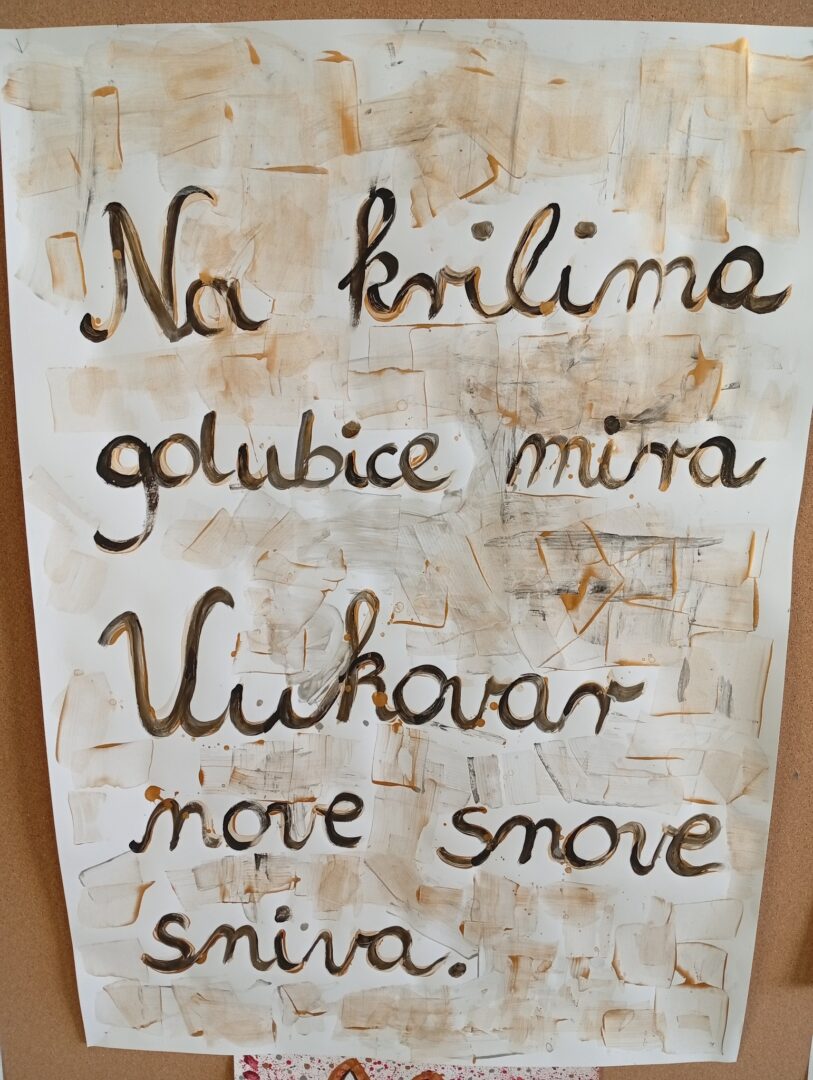 Na krilima
golubice mira
Vukovar
nove snove
sniva.